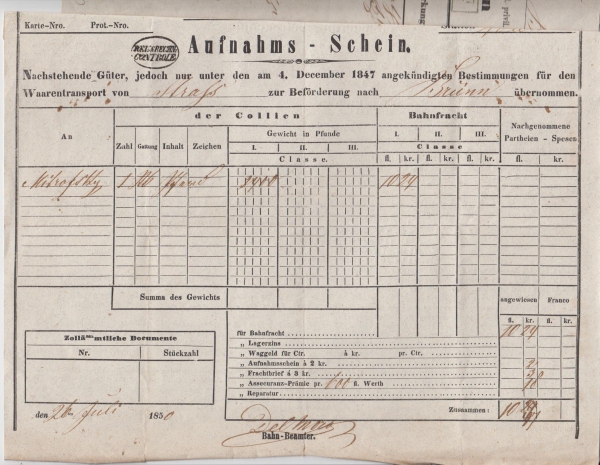 Karte-Nro. Prot.-Nro.
CONTROLE
Aufnahms - Schein.
Nachstehende Güter, jedoch nur unter den am 4. December 1847 angekündigten Bestimmungen für den
Waarentransport von Strass zur Beförderung nach Brünn übernommen.
An
der Collien
Bahnfracht
Nachgenommene
Partheien - Spesen
Zahl Gattung Inhalt Zeichen
Gewicht in Pfunde
I. II. III.
Classe.
I. II. III.
Classe
fl. kr. fl. kr. fl. kr. fl. kr.
1 10 24
Summa des Gewichts
angewiesen Franco
fl. kr. fl. kr.
Zollämtliche Documente
Nr. Stückzahl
für Bahnfracht 10 24
„ Lagerzins
„ Waggeld für Ctr. à kr. pr. Ctr.
„ Aufnahmsschein à 2 kr. 2
„ Frachtbrief á 3 kr. 3
„ Assecuranz-Prämie pr. fl. Werth 10
„ Reparatur
Zusammen: 10
den 26 Juli 1850
Bahn-Beamter.